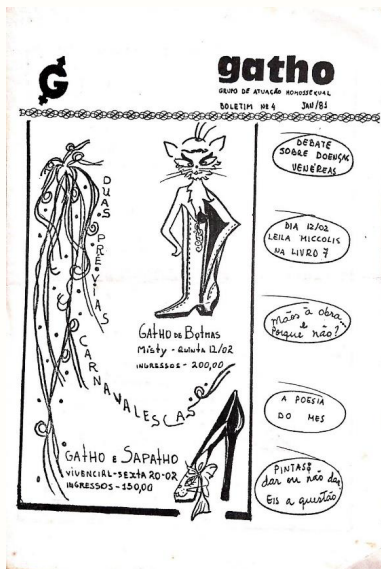 G
gatho
GRUPO DE ATUAÇÃO HOMOSSEXUAL
BOLETIM Nº 4 JAN/81
DUAS PRÉVIAS CARNAVALESCAS
GATHO DE BOTAAS
MISTY - QUINTA 12/02
INGRESSOS - 200,00
GATHO E SAPATHO
VIVENCIAL - SEXTA 20-02
INGRESSOS - 150,00
DEBATE
SOBRE DOENÇAS
VENÉREAS
DIA 12/02
LEILA MICCOLIS
NA LIVRO 7
Mãos à obra,
e
Porque não?
A POESIA
DO MES
PINTAS:
dar ou não dar
EIS a questão